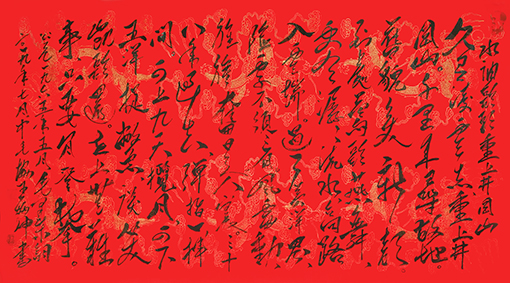 水调歌头 重上井冈山
久有凌云志,重上井
冈山。千里来寻故地,
旧貌变新颜。
到处莺歌燕舞,
更有潺潺流水,高路
入云端。过了黄洋界,
险处不须看。风雷动,
旌旗奋,是人寰。三十
八年过去,弹指一挥
间。可上九天揽月,可下
五洋捉鳖,谈笑
凯歌还。世上无难
事,只要肯登攀。